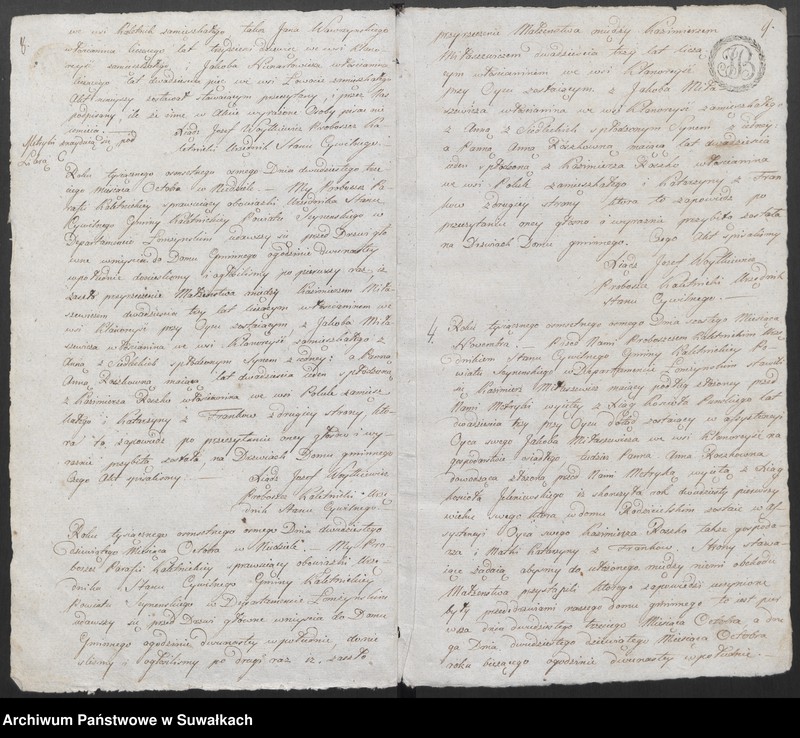 8.
we wsi Kaletnik zamieszkałego talia Jana Wawrzynskiego
włościanina liczącego lat trzydzieści dziewięć we wsi Kłono-
reyść zamieszkałego i Jakoba Nienartowicza włościanina
liczącego lat dwadzieścia pięć we wsi Łowocie zamieszkałego
Akt ninieyszy zestawał stawaiącym przeczytany, i przez Nas
podpisany, ile że inne w Akcie wyrażone Osoby pisać nie
umieią. — Xiądz Jozef Woytkiewicz Proboszcz Ka-
letnicki Urzędnik Stanu Cywilnego. —
Metryki znayduią się pod
Literą C
Roku tysiącznego osmsetnego osmego Dnia dwudziestego trze-
ciego Miesiąca Octobra w Niedziele. — My Proboszcz Pa-
rafii Kaletnickiey sprawuiący obowiązki Urzędnika Stanu
Cywilnego Gminy Kaletnickiey Powiatu Seynenskiego w
Departamencie Łomżynskim udawszy się przed Drzwi głó
wne weniyścia do Domu Gminnego ogodzinie dwunastey
wpołudnie donieslismy i ogłosilismy po pierwszy raz iż
zaszło przyrzeczenie Małżenstwa między Kazimierzem Miła-
szewiczem dwadzieścia trzy lat liczącym włościaninem we
wsi Kłonoreyść przy Oycu zostaiącym z Jakoba Miła-
szewicza włościanina we wsi Kłonoreyść zamieszkałego z
Anną z Siedleckich spłodzonym Synem z iedney: a Panną
Anną Raszkowną maiącą lat dwadzieścia ieden spłodzoną
z Kazimierza Raszko włościanina we wsi Polule zamiesz-
kałego i Katarzyny z Frankow zdrugiey strony któ-
ra to zapowiedz po przeczytaniu oney głośno i wy-
raźnie przybita została na Drzwiach Domu gminnego
Czego Akt spisalismy: — Xiądz Jozef Woytkiewicz
Proboszcz Kaletnicki Urzę-
dnik Stanu Cywilnego. —
Roku tysiącznego osmsetnego osmego Dnia dwudziestego
dziewiątego Miesiąca Octobra w Niedziele. — My Pro-
boszcz Parafii Kaletnickiey sprawuiący obowiązki Urzę-
dnika Stanu Cywilnego Gminy Kaletnickiey
Powiatu Seynenskiego w Departamencie Łomżynskim
udawszy się przed Drzwi główne weniyścia do Domu
Gminnego ogodzinie dwunastey wpołudnie, donie-
slismy i ogłosilismy po drugi raz iż zaszło
9.
przyrzeczenie Małżenstwa między Kazimierzem
Miłaszewiczem dwadzieścia trzy lat liczą-
cym włościaninem we wsi Kłonoreyść
przy Oycu zostaiącym z Jakoba Miła-
szewicza włościanina we wsi Kłonoreyść zamieszkałego
z Anną z Siedleckich spłodzonym Synem z iedney:
a Panną Anną Raszkowną maiącą lat dwadzieścia
ieden spłodzoną z Kazimierza Raszko włościanina
we wsi Polule zamieszkałego i Katarzyny z Fran-
kow zdrugiey strony która to zapowiedz po
przeczytaniu oney głośno i wyraźnie przybita została
na Drzwiach Domu gminnego. Czego Akt spisalismy
Xiądz Jozef Woytkiewicz
Proboszcz Kaletnicki Urzędnik
Stanu Cywilnego. —
4. Roku tysiącznego osmsetnego osmego Dnia szostego Miesiąca
Novembra. — Przed Nami Proboszczem Kaletnickim Urzę-
dnikiem Stanu Cywilnego Gminy Kaletnickiey Po-
wiatu Seynenskiego w Departamencie Łomżynskim stawił
się Kazimierz Miłaszewicz maiący podług złożoney przed
Nami Metryki wyiętey z Xiąg Kościoła Puńskiego lat
dwadzieścia trzy przy Oycu dotąd zostaiący w assystencyi
Oyca swego Jakoba Miłaszewicza we wsi Kłonoreyść na
gospodarstwie siadłego tudzież Panna Anna Raszkowna
dowodząca złożoną przed Nami Metryką wyiętą z Xiąg
Kościoła Jeleniewskiego iż skonczyła rok dwudziesty pierwszy
wieku swego która w domu Rodzicielskim zostaie w as-
systencyi Oyca swego Kazimierza Raszko także gospoda-
rza i Matki Katarzyny z Frankow. Strony stawa-
iące żądaią abysmy do ułożonego między niemi obchodu
Małżenstwa przystąpili którego zapowiedzi uczynione
były przeddrzwiami naszego domu gminnego to iest pier-
wsza dnia dwudziestego trzeciego Miesiąca Octobra, a dru-
ga Dnia dwudziestego dziewiątego Miesiąca Octobra
roku bieżącego ogodzinie dwunastey wpołudnie. —
Archiwum Państwowe w Suwałkach